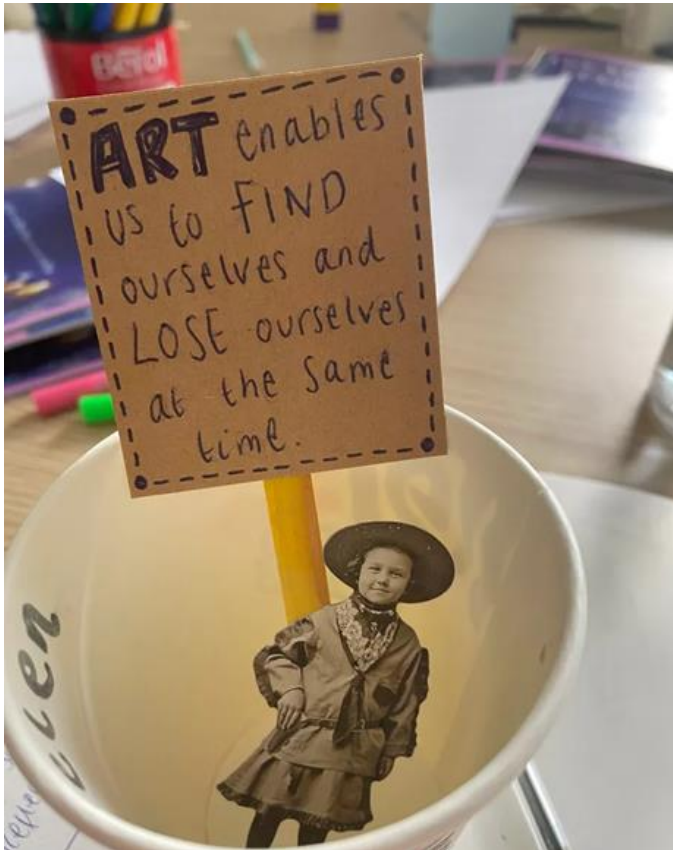 Berol
ART enables
us to FIND
ourselves and
LOSE ourselves
at the same
time.